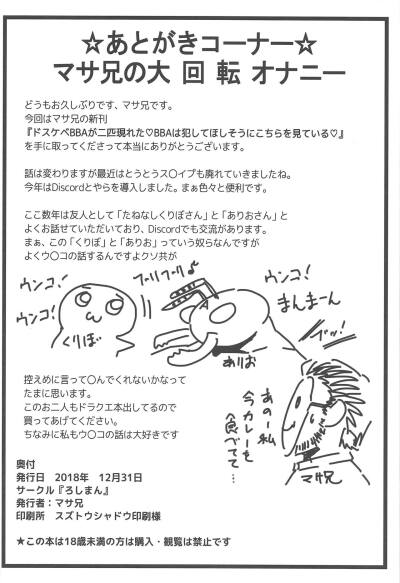 ☆あとがきコーナー☆
マサ兄の大 回 転 オナニー
どうもお久しぶりです、マサ兄です。
今回はマサ兄の新刊
『ドスケベBBAが二匹現れた♡BBAは犯してほしそうにこちらを見ている♡』
を手に取ってくださって本当にありがとうございます。
話は変わりますが最近はとうとうス〇イプも廃れていきましたね。
今年はDiscordとやらを導入しました。まぁ色々と便利です。
ここ数年は友人として「たねなしくりぼさん」と「ありおさん」と
よくお話させていただいており、Discordでも交流があります。
まぁ、この「くりぼ」と「ありお」っていう奴らなんですが
よくウ〇コの話するんですよクソ共が
ウンコ!
ウンコ!
くりぼ
ブーリブーリ♪
ありお
ウンコ!
まんまーん
ブッ!
あのー私
今カレーを
食べてて…
マサ兄
控えめに言って〇んでくれないかなって
たまに思います。
このお二人もドラクエ本出してるので
買ってあげてください。
ちなみに私もウ〇コの話は大好きです
奥付
発行日 2018年 12月31日
サークル『ろしまん』
発行者：マサ兄
印刷所 スズトウシャドウ印刷様
★この本は18歳未満の方は購入・観覧は禁止です